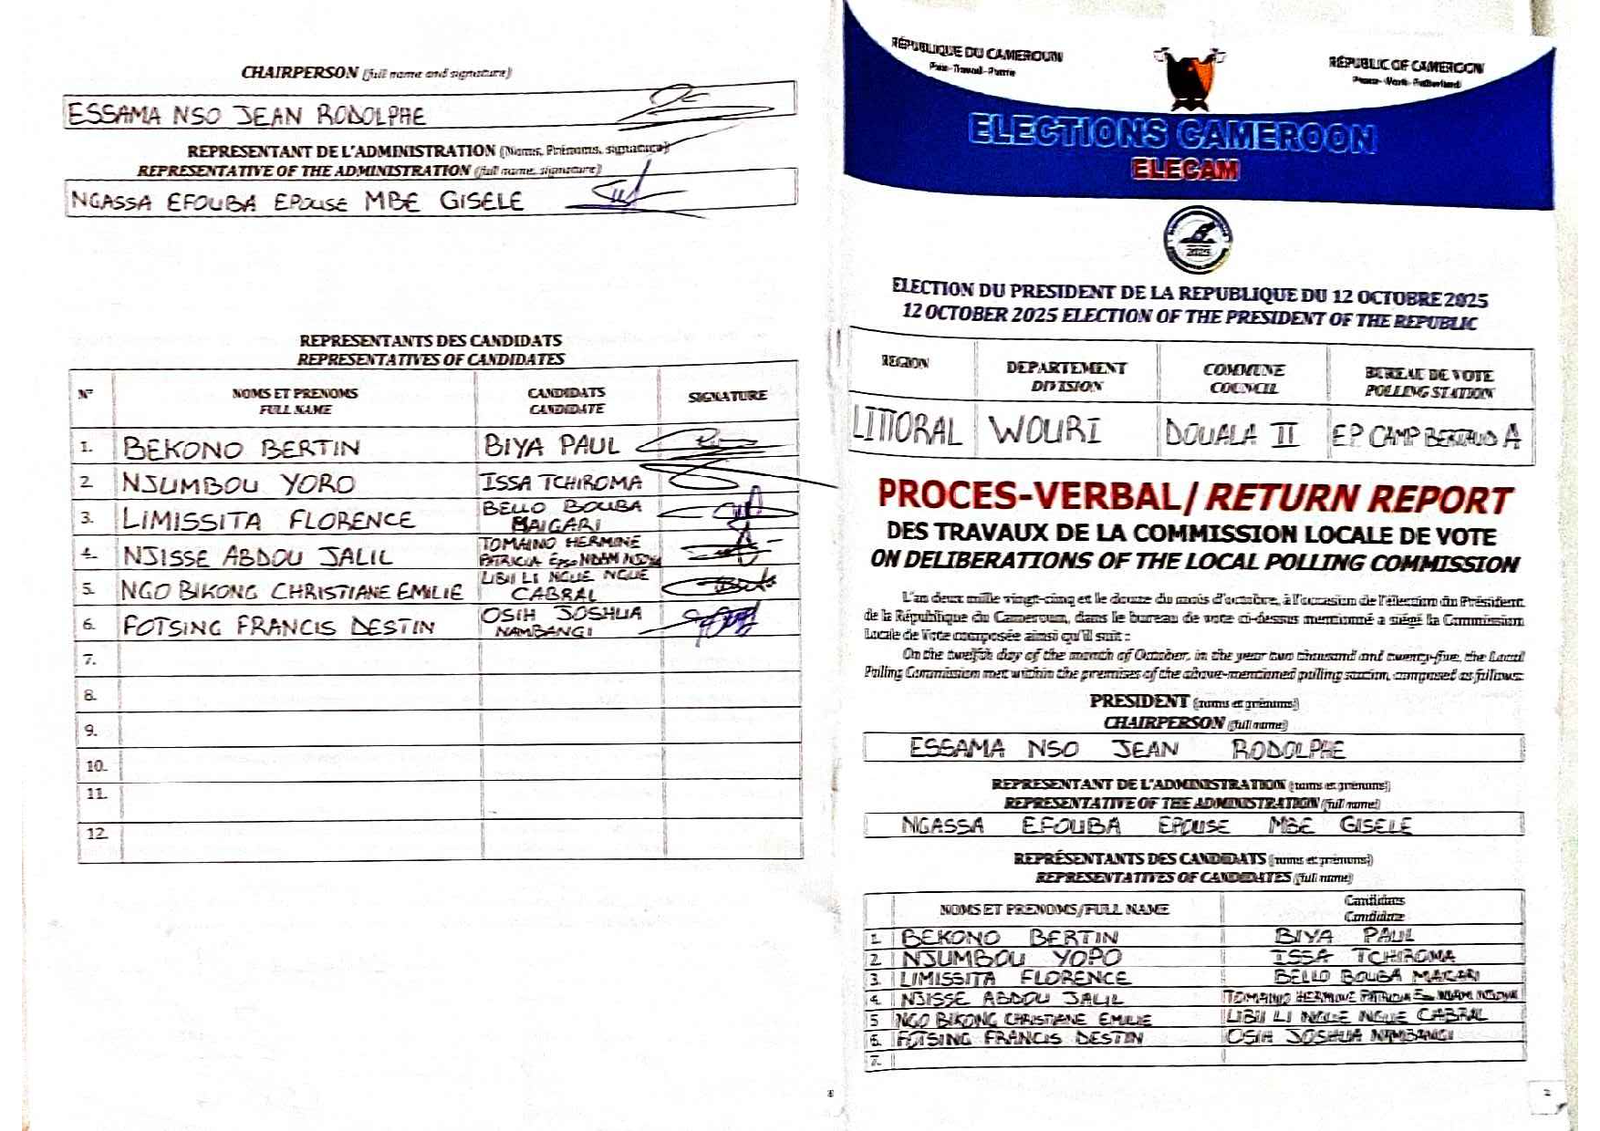 CHAIRPERSON (full name and signature)
ESSAMA NSO JEAN RODOLPHE
REPRESENTANT DE L'ADMINISTRATION (Noms, Prénoms, signature)
REPRESENTATIVE OF THE ADMINISTRATION (full name, signature)
NGASSA EFOUBA EPOUSE MBE GISELE
REPRESENTANTS DES CANDIDATS
REPRESENTATIVES OF CANDIDATES
N° NOMS ET PRENOMS CANDIDATS SIGNATURE
FULL NAME CANDIDATE
1. BEKONO BERTIN BIYA PAUL
2. NJUMBOU YORO ISSA TCHIROMA
3. LIMISSITA FLORENCE BELLO BOUBA MAIGARI
4. NJISSE ABDOU JALIL TOMAINO HERMINE PATRICIA Epse NDAM NJOYA
5. NGO BIKONG CHRISTIANE EMILIE LIBII LI NGUE NGUE CABRAL
6. FOTSING FRANCIS DESTIN OSIH JOSHUA NAMBANGI
7.
8.
9.
10.
11.
12.
8
RÉPUBLIQUE DU CAMEROUN
Paix-Travail-Patrie
REPUBLIC OF CAMEROON
Peace-Work-Fatherland
ELECTIONS CAMEROON
ELECAM
2025
ELECTION DU PRESIDENT DE LA REPUBLIQUE DU 12 OCTOBRE 2025
12 OCTOBER 2025 ELECTION OF THE PRESIDENT OF THE REPUBLIC
REGION DEPARTEMENT COMMUNE BUREAU DE VOTE
DIVISION COUNCIL POLLING STATION
LITTORAL WOURI DOUALA II EP CAMP BERTAUD A
PROCES-VERBAL / RETURN REPORT
DES TRAVAUX DE LA COMMISSION LOCALE DE VOTE
ON DELIBERATIONS OF THE LOCAL POLLING COMMISSION
L'an deux mille vingt-cinq et le douze du mois d'octobre, à l'occasion de l'élection du Président
de la République du Cameroun, dans le bureau de vote ci-dessus mentionné a siégé la Commission
Locale de Vote composée ainsi qu'il suit :
On the twelfth day of the month of October, in the year two thousand and twenty-five, the Local
Polling Commission met within the premises of the above-mentioned polling station, composed as follows:
PRESIDENT (noms et prénoms)
CHAIRPERSON (full name)
ESSAMA NSO JEAN RODOLPHE
REPRESENTANT DE L'ADMINISTRATION (noms et prénoms)
REPRESENTATIVE OF THE ADMINISTRATION (full name)
NGASSA EFOUBA EPOUSE MBE GISELE
REPRÉSENTANTS DES CANDIDATS (noms et prénoms)
REPRESENTATIVES OF CANDIDATES (full name)
NOMS ET PRENOMS/FULL NAME Candidats
Candidate
1. BEKONO BERTIN BIYA PAUL
2. NJUMBOU YOPO ISSA TCHIROMA
3. LIMISSITA FLORENCE BELLO BOUBA MAGARI
4. NJISSE ABDOU JALIL TOMAINO HERMINE PATRICIA NDAM NJOYA
5 NGO BIKONG CHRISTIANE EMILIE LIBII LI NGUE NGUE CABRAL
6. FOTSING FRANCIS DESTIN OSIH JOSHUA NAMBANGI
7.
2